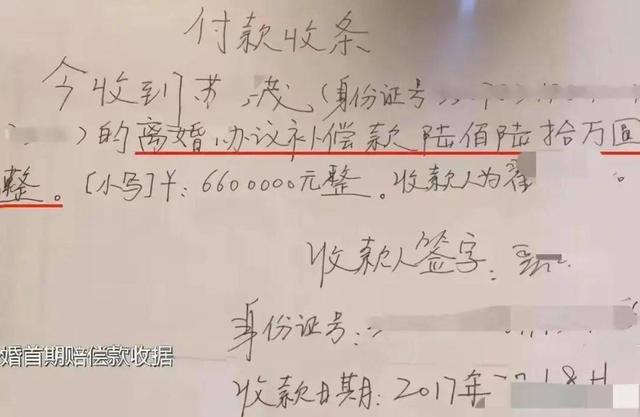 付款收条
今收到苏茂(身份证号
)的离婚协议补偿款陆佰陆拾万圆
整。[小写]¥:6600000元整。收款人为翟。
收款人签字:
身份证号:
婚首期赔偿款收据
收款日期:2017年